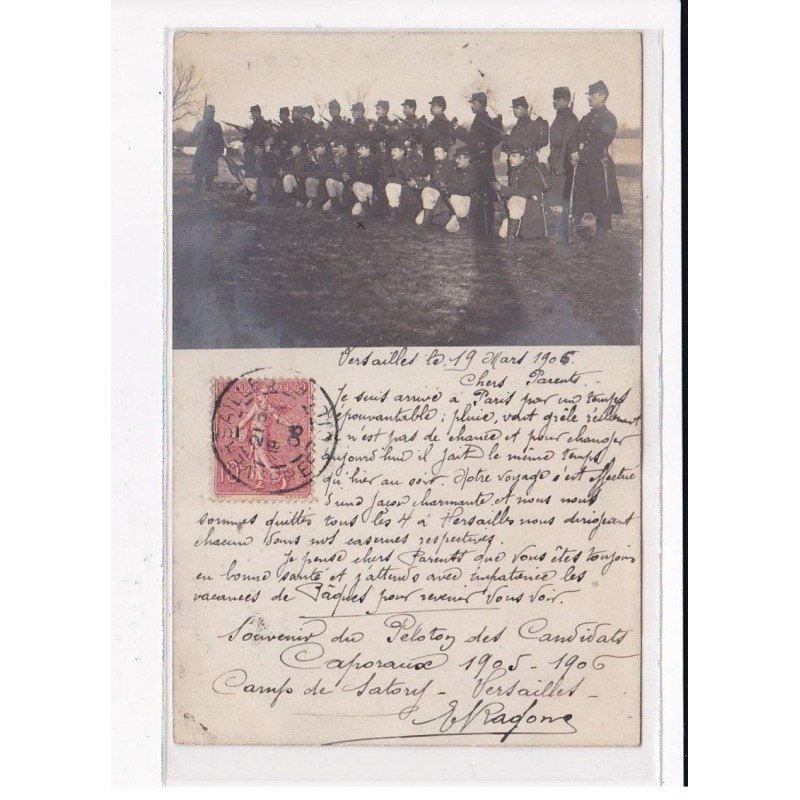 Versailles le 19 Mars 1906
Chers Parents.
Je suis arrivé à Paris par un temps
épouvantable : pluie, vent grêle réellement
n'est pas de chance et pour changer
aujourd'hui il fait le même temps
qu'hier au soir. Notre voyage s'est effectué
d'une façon charmante et nous nous
sommes quittés tous les 4 à Versailles nous dirigeant
chacun dans nos casernes respectives.
Je pense chers Parents que vous êtes toujours
en bonne santé et j'attends avec impatience les
vacances de Pâques pour revenir vous voir.
Souvenir du Peloton des Candidats
Caporaux 1905-1906
Camp de Satory - Versailles -
Ragone